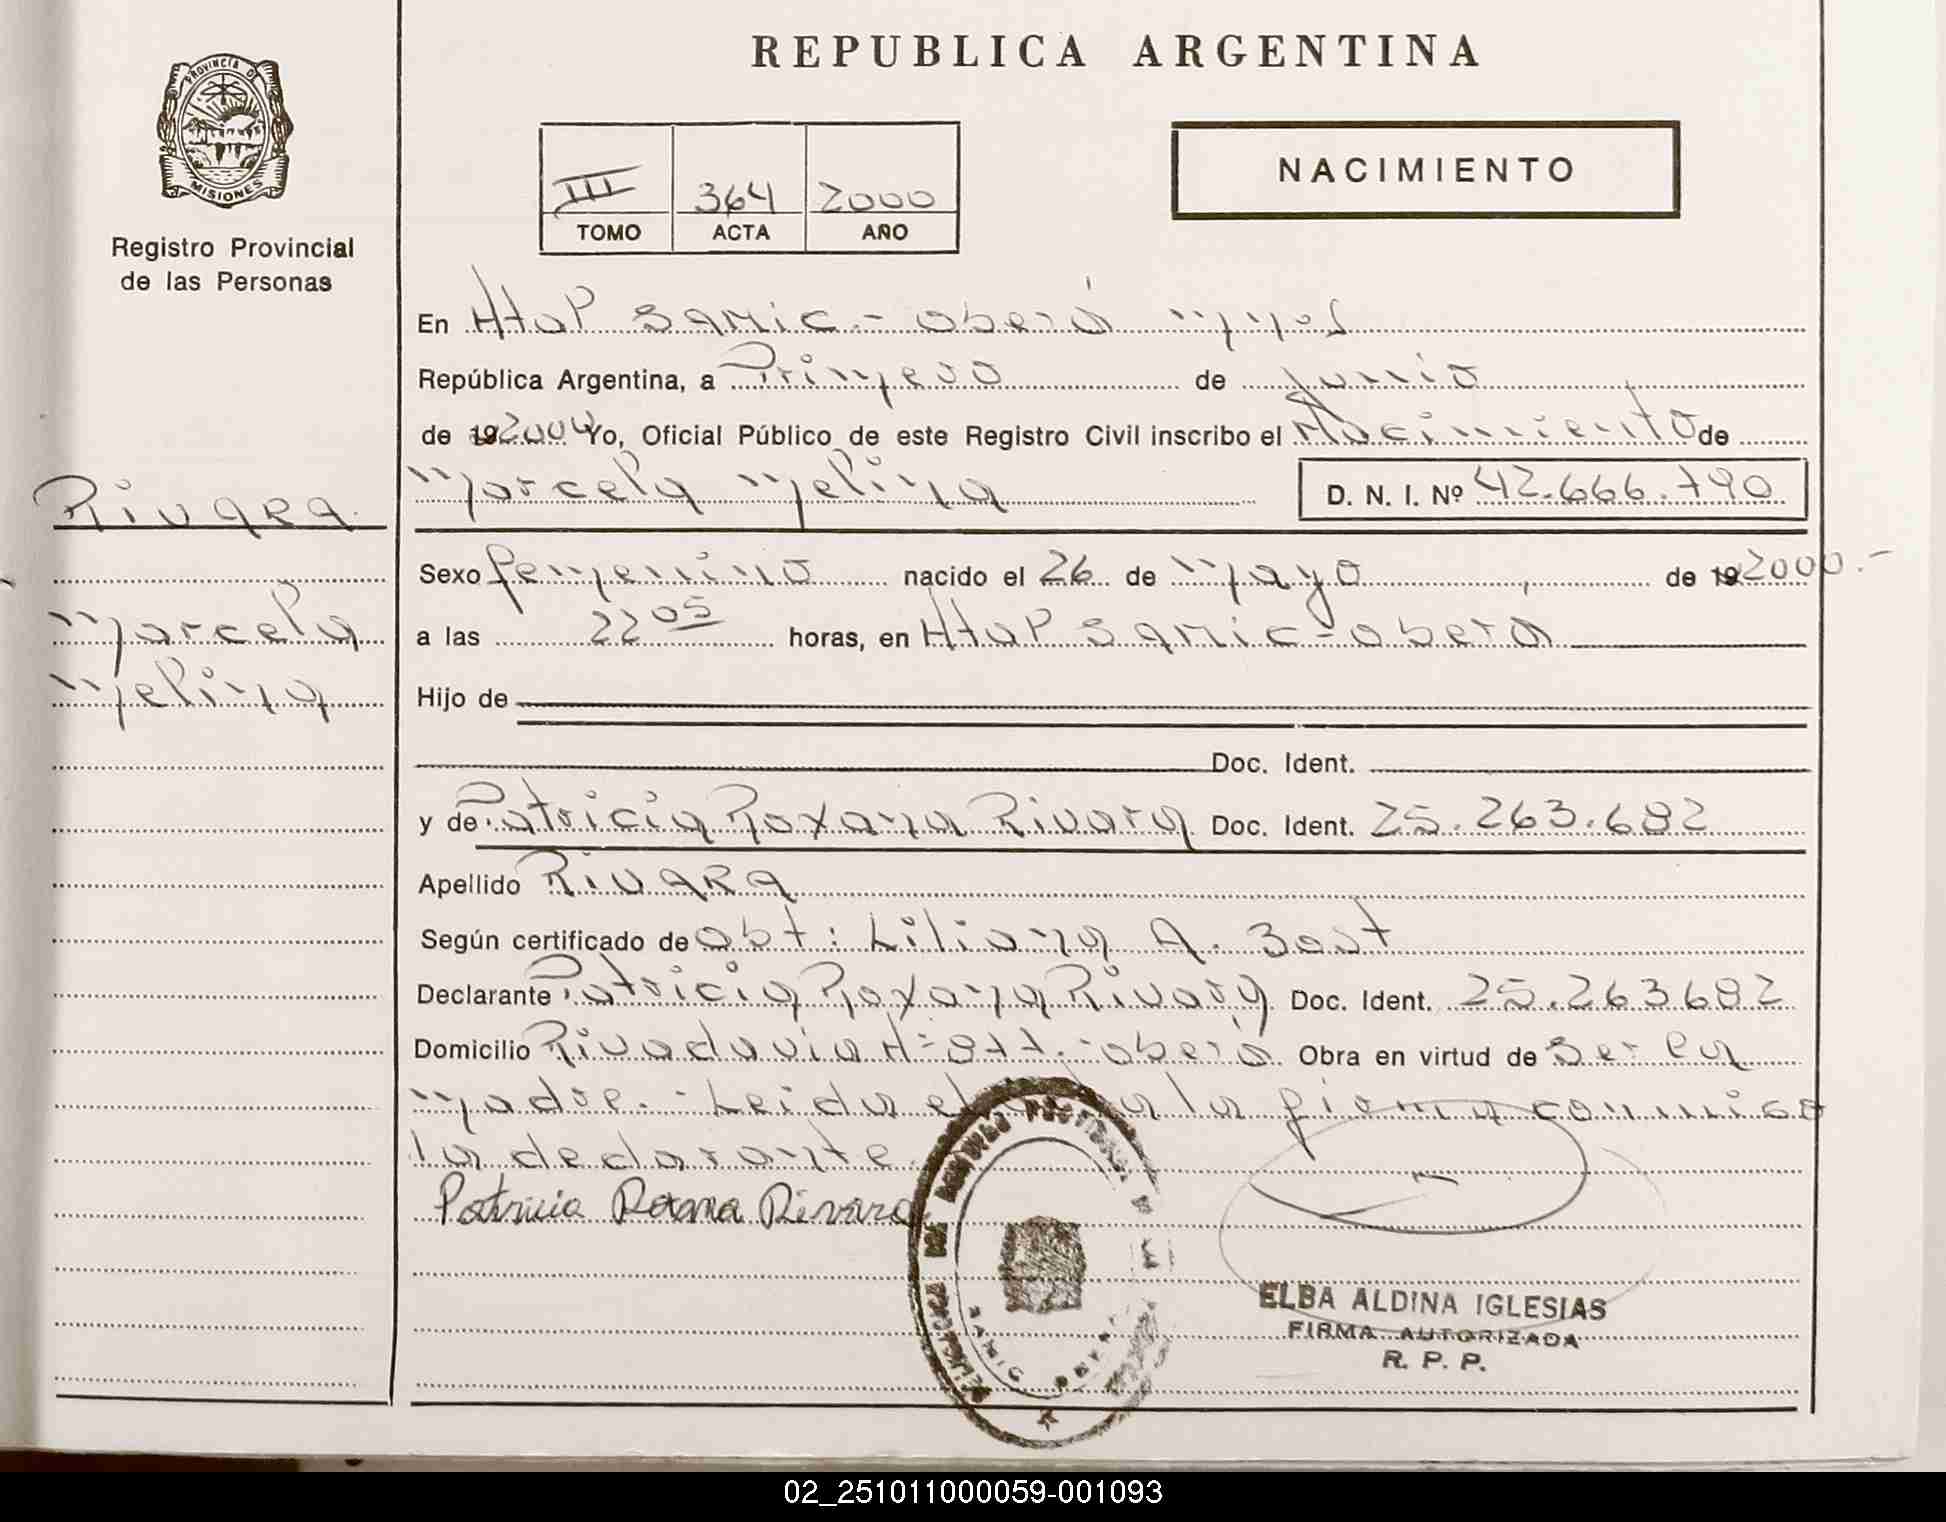 REPUBLICA ARGENTINA
PROVINCIA DE
MISIONES
Registro Provincial
de las Personas
III 364 2000
TOMO ACTA AÑO
NACIMIENTO
En Htal Samic.- Oberá Mnes
República Argentina, a Primero de Junio
de 19 2000 Yo, Oficial Público de este Registro Civil inscribo el Nacimiento de
Rivara
Marcela Melina D. N. I. Nº 42.666.790
Sexo femenino nacido el 26 de Mayo de 19 2000.-
Marcela
Melina
a las 22 05 horas, en Htal Samic - Oberá
Hijo de
Doc. Ident.
y de Patricia Roxana Rivara Doc. Ident. 25.263.682
Apellido Rivara
Según certificado de Obt: Liliana A.
Declarante Patricia Roxana Rivara Doc. Ident. 25.263682
Domicilio Rivadavia Nº 877.- Oberá Obra en virtud de Ser la
Madre.- Leida el la firma conmigo
la declarante.
Patricia Roxana Rivara
SAMIC
ELBA ALDINA IGLESIAS
FIRMA AUTORIZADA
R. P. P.
02_251011000059-001093